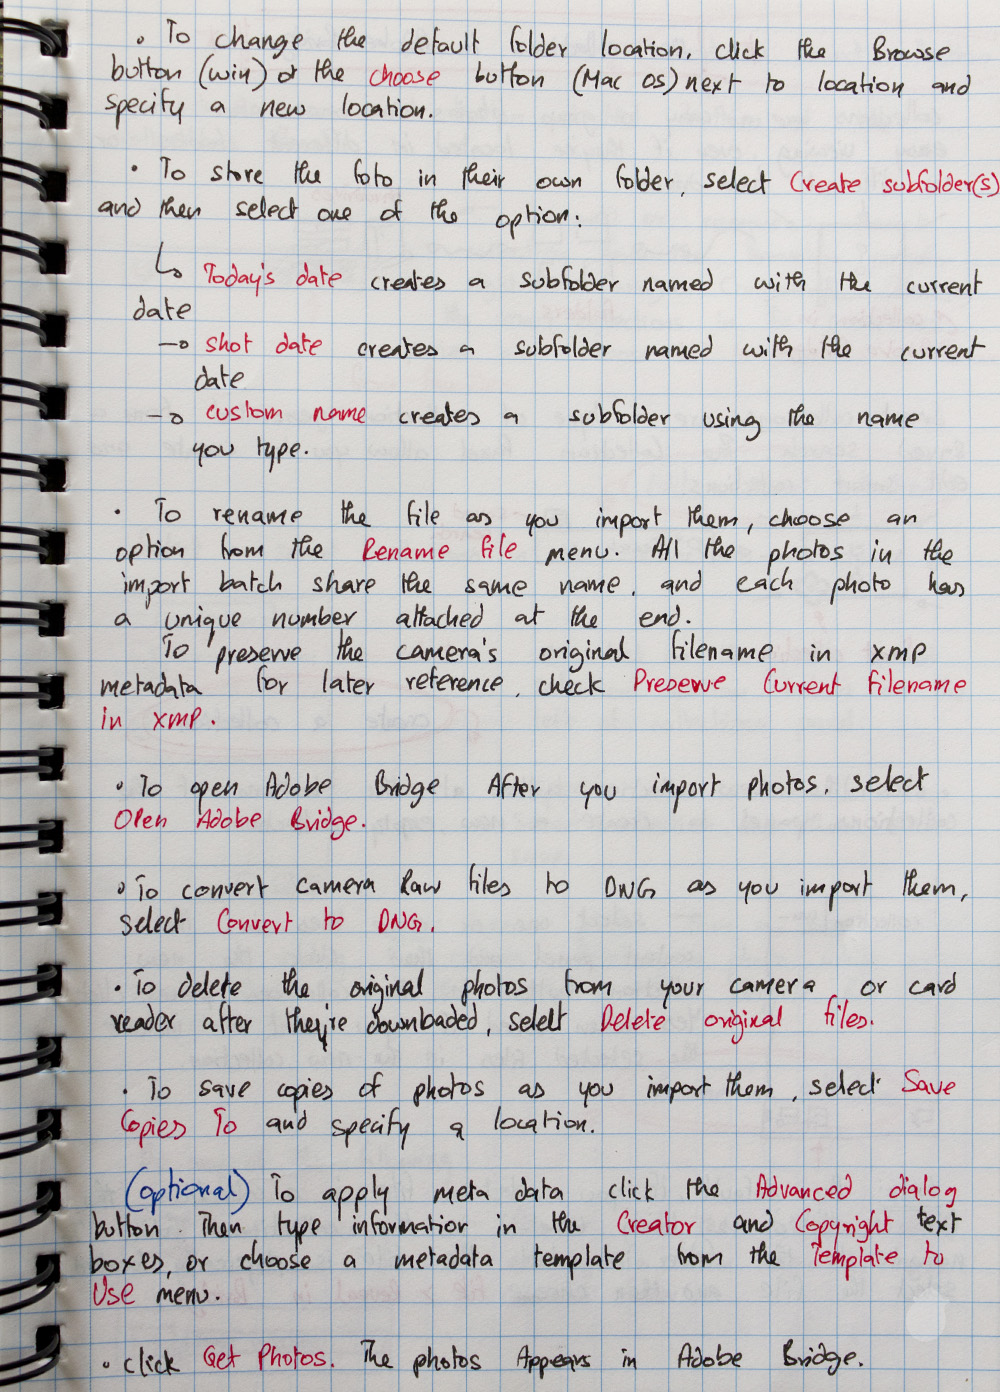 • To change the default folder location, click the Browse
button (win) or the choose button (Mac OS) next to location and
specify a new location.
• To store the foto in their own folder, select Create subfolder(s)
and then select one of the option:
↳ Today's date creates a subfolder named with the current
date
→ shot date creates a subfolder named with the current
date
→ custom name creates a subfolder using the name
you type.
• To rename the file as you import them, choose an
option from the Rename file menu. All the photos in the
import batch share the same name, and each photo has
a unique number attached at the end.
To preserve the camera's original filename in xmp
metadata for later reference, check Preserve Current filename
in xmp.
• To open Adobe Bridge After you import photos, select
Open Adobe Bridge.
• To convert camera Raw files to DNG as you import them,
select Convert to DNG.
• To delete the original photos from your camera or card
reader after they're downloaded, select Delete original files.
• To save copies of photos as you import them, select Save
Copies To and specify a location.
(optional) To apply meta data click the Advanced dialog
button. Then type information in the Creator and Copyright text
boxes, or choose a metadata template from the Template to
Use menu.
• click Get Photos. The photos Appears in Adobe Bridge.